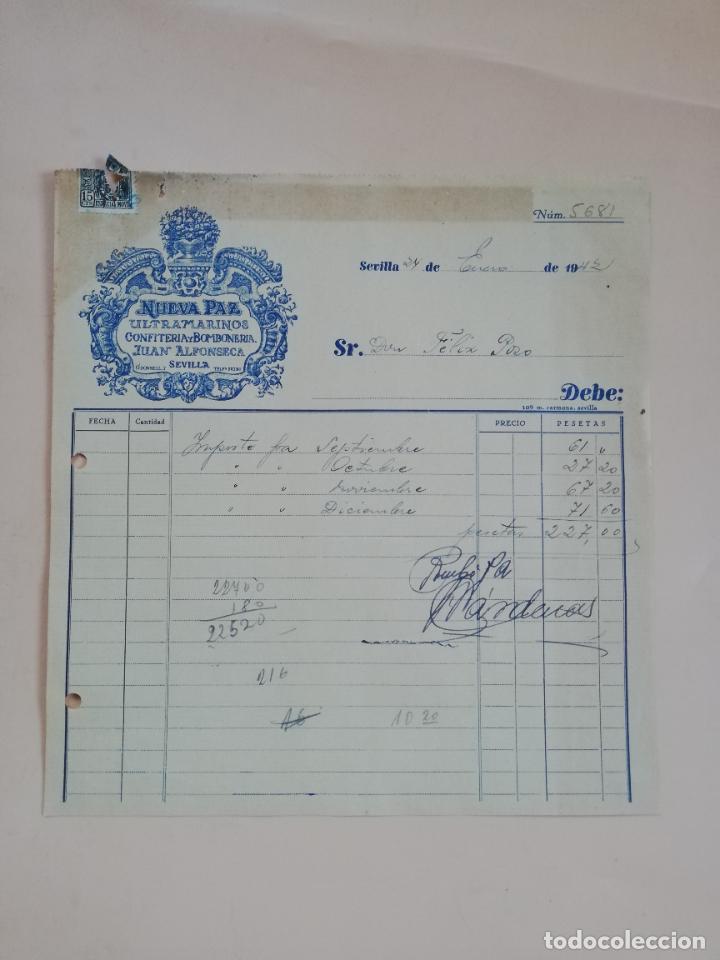 15
CTS
Núm. 5681
Sevilla 24 de Enero de 1942
NUEVA PAZ
ULTRAMARINOS
CONFITERIA Y BOMBONERIA.
JUAN ALFONSECA
SEVILLA
O'DONNELL, 7 TELFº
Sr. Don Félix Pozo
Debe:
m. carmona: sevilla
FECHA Cantidad PRECIO PESETAS
Importe fra Septiembre 61 "
" " Octubre 27 20
" " Noviembre 67 20
" " Diciembre 71 60
pesetas 227,00
Recibí
22700
180
22520
216
16 10 20
todocoleccion
todocoleccion.net